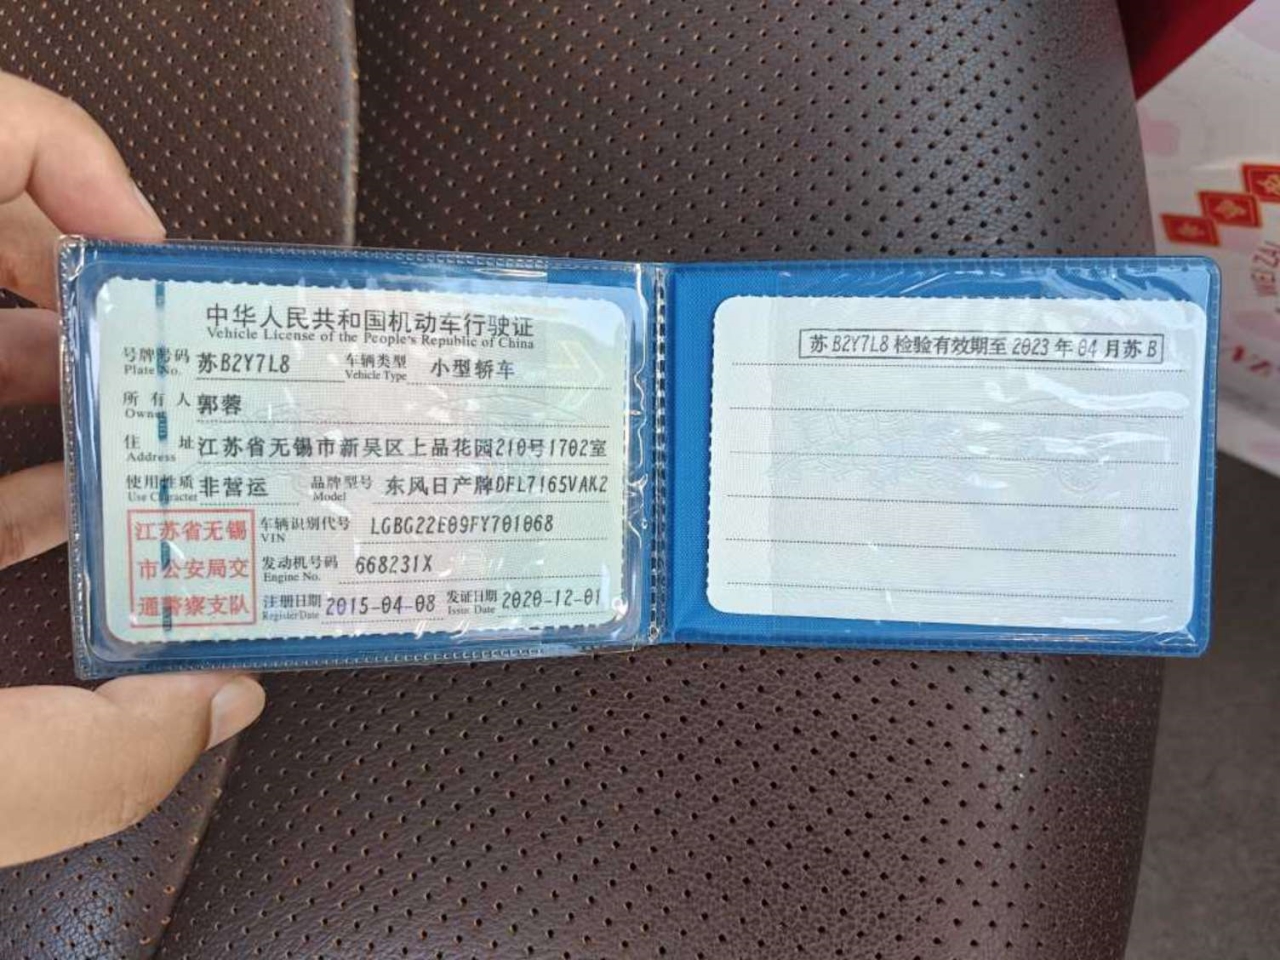 中华人民共和国机动车行驶证
Vehicle License of the People's Republic of China
号牌号码 苏B2Y7L8 车辆类型 小型轿车
Plate No. Vehicle Type
所有人 郭蓉
Owner
住址 江苏省无锡市新吴区上品花园210号1702室
Address
使用性质 非营运 品牌型号 东风日产牌DFL7165VAK2
Use Character Model
江苏省无锡
市公安局交
通警察支队
车辆识别代号 LGBG22E09FY701068
VIN
发动机号码 668231X
Engine No.
注册日期 2015-04-08 发证日期 2020-12-01
Register Date Issue Date
苏B2Y7L8 检验有效期至 2023 年 04 月苏 B